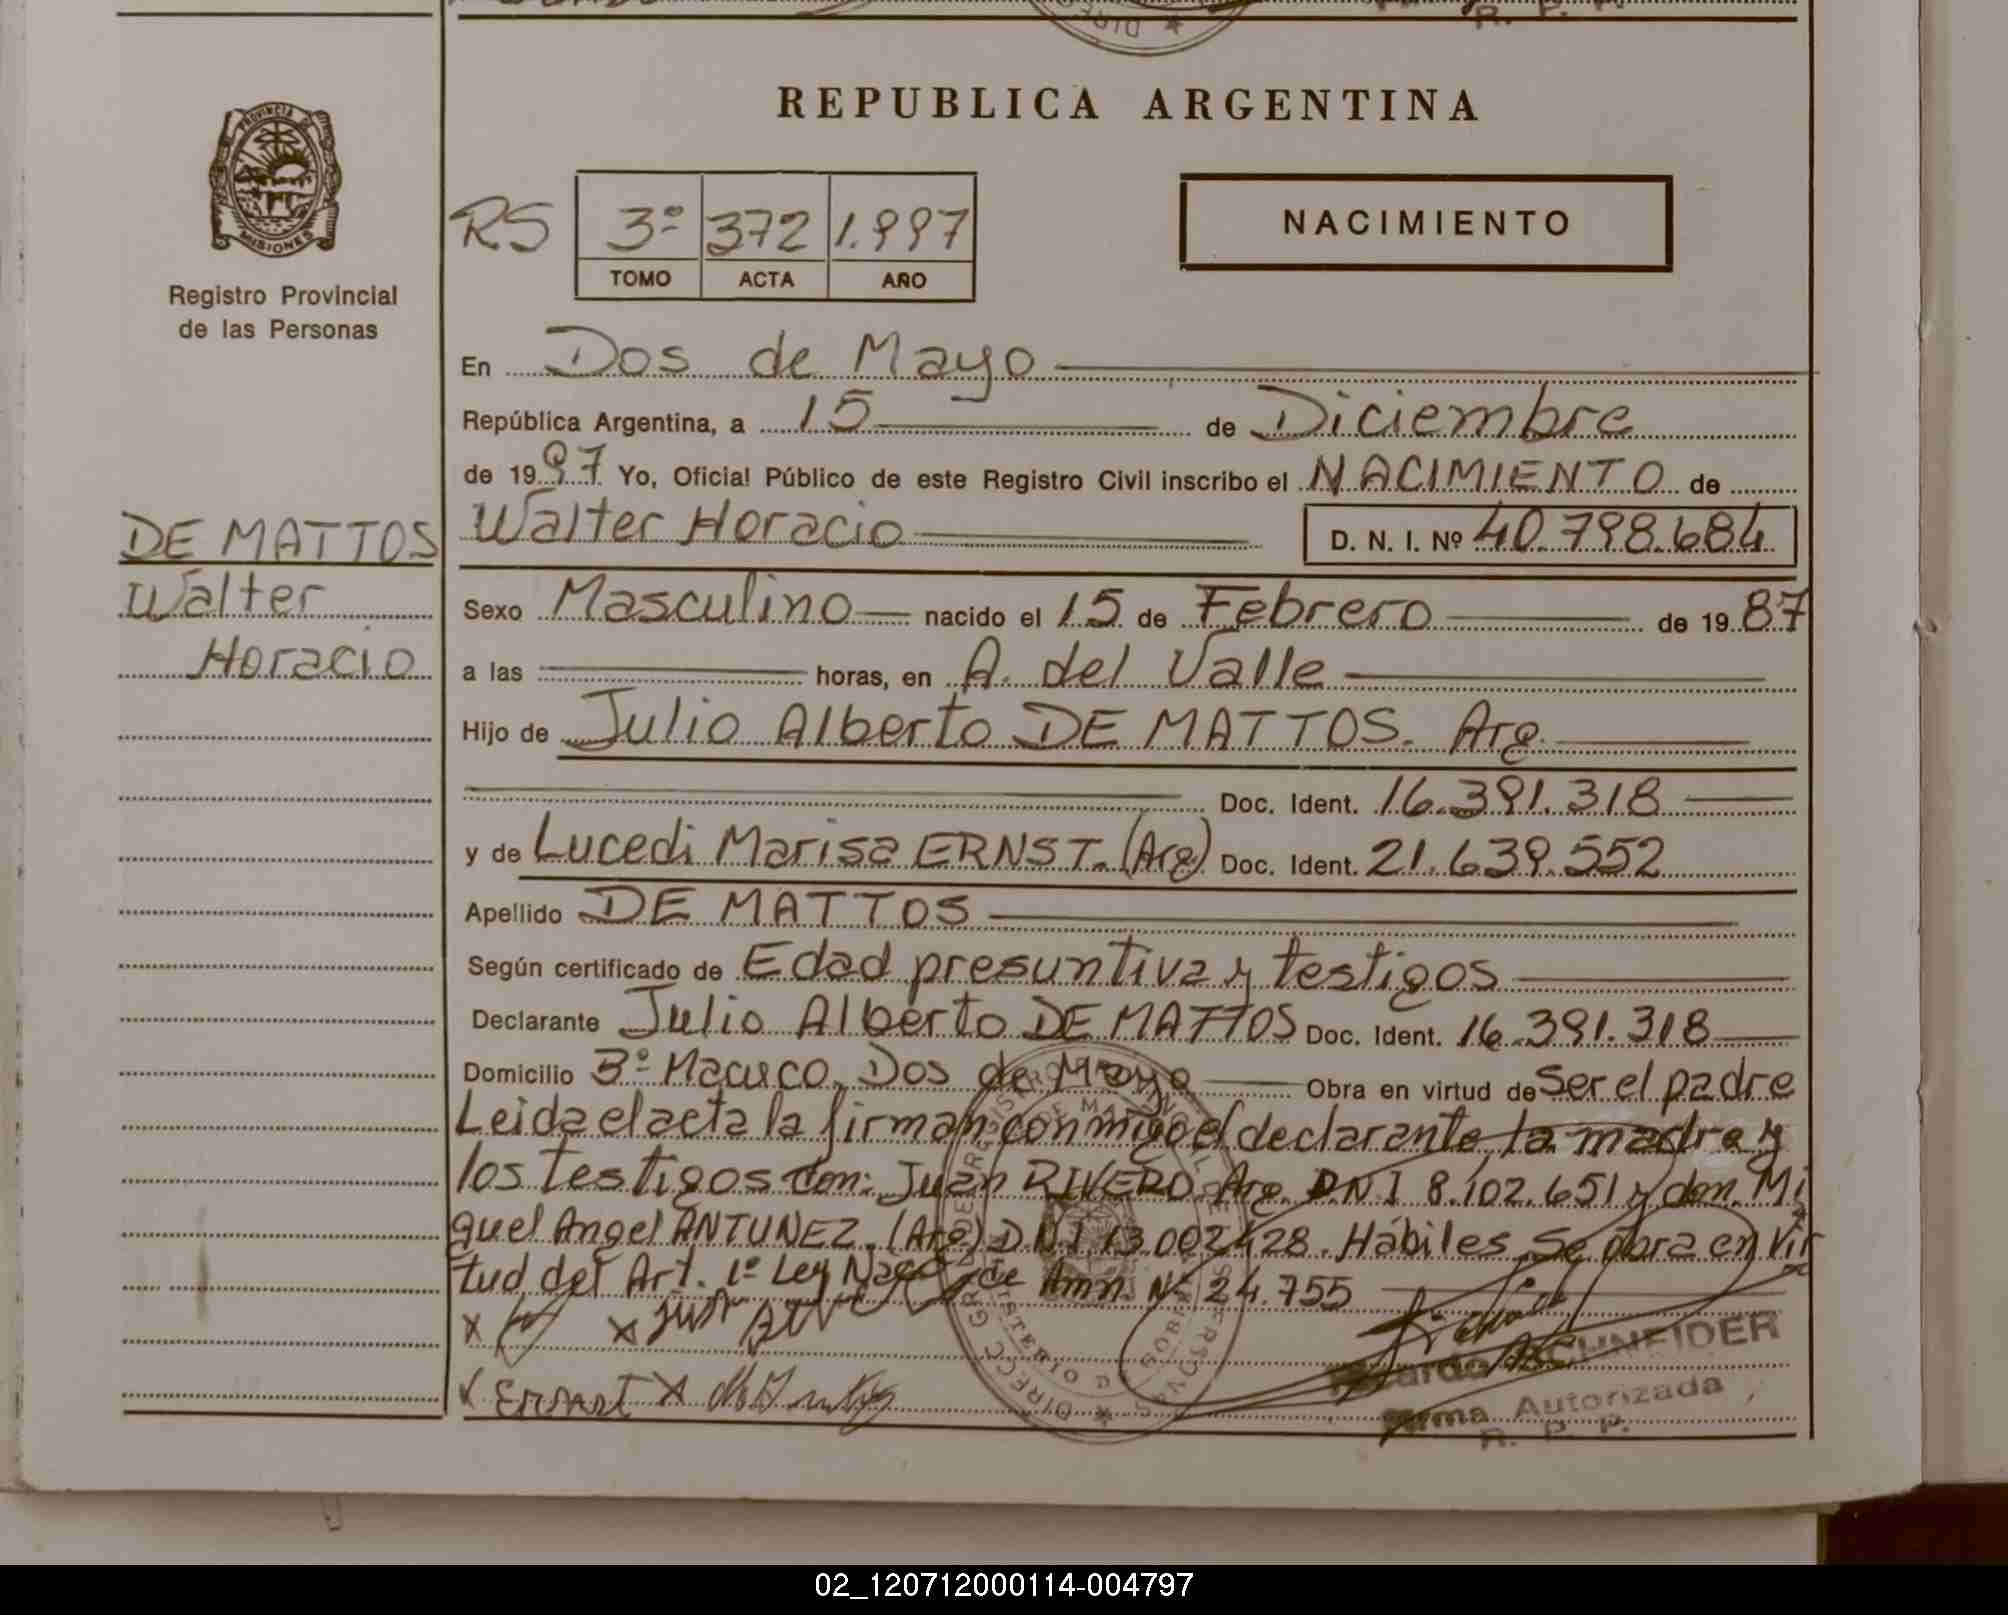 REPUBLICA ARGENTINA
PROVINCIA DE
MISIONES
Registro Provincial
de las Personas
RS 3º 372 1.997
TOMO ACTA AÑO
NACIMIENTO
En Dos de Mayo
República Argentina, a 15 de Diciembre
de 1997 Yo, Oficial Público de este Registro Civil inscribo el NACIMIENTO de
DE MATTOS
Walter
Horacio
Walter Horacio D. N. I. Nº 40.798.684
Sexo Masculino nacido el 15 de Febrero de 1987
a las horas, en A. del Valle
Hijo de Julio Alberto DE MATTOS. Arg.
Doc. Ident. 16.391.318
y de Lucedi Marisa ERNST. (Arg) Doc. Ident. 21.639.552
Apellido DE MATTOS
Según certificado de Edad presuntiva y testigos
Declarante Julio Alberto DE MATTOS Doc. Ident. 16.391.318
Domicilio 3º Macuco, Dos de Mayo Obra en virtud de Ser el padre
Leida el acta la firman conmigo el declarante, la madre y
los testigos don: Juan RIVERO. Arg. DNI 8.102.651 y don. Mi
guel Angel ANTUNEZ. (Arg) DNI 13.002.428. Hábiles. Se obra en vir
tud del Art. 1º Ley Nac. de Amn. Nº 24.755
SCHNEIDER
Firma Autorizada
R. P. P.
02_120712000114-004797